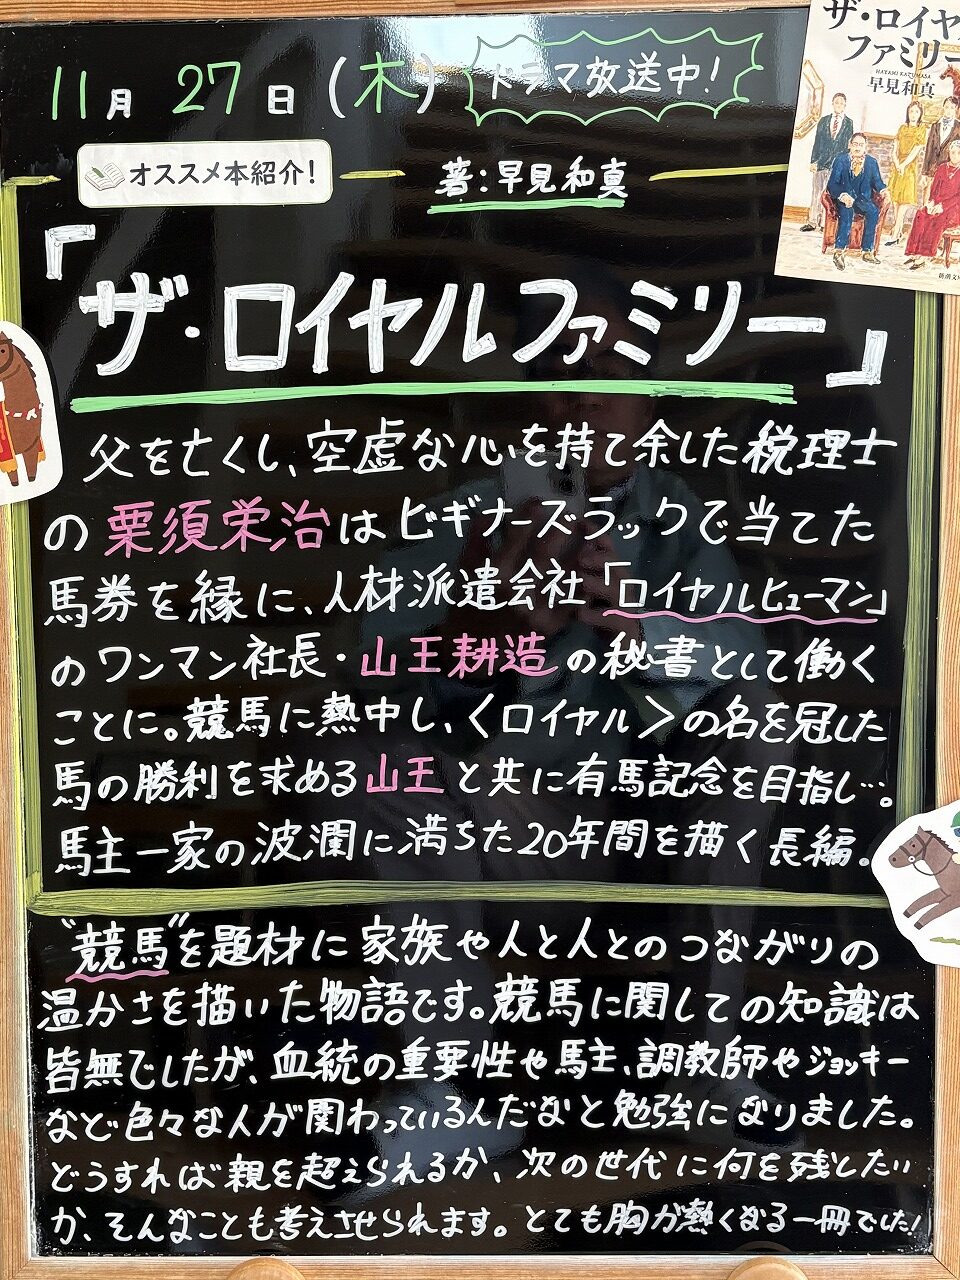 11月27日(木)
ドラマ放送中!
ザ・ロイヤル
ファミリー
HAYAMI KAZUMASA
早見和真
オススメ本紹介!
著:早見和真
『ザ・ロイヤルファミリー』
父を亡くし、空虚な心を持て余した税理士
の栗須栄治はビギナーズラックで当てた
馬券を縁に、人材派遣会社「ロイヤルヒューマン」
のワンマン社長・山王耕造の秘書として働く
ことに。競馬に熱中し、〈ロイヤル〉の名を冠した
馬の勝利を求める山王と共に有馬記念を目指し…。
馬主一家の波瀾に満ちた20年間を描く長編。
"競馬"を題材に家族や人と人とのつながりの
温かさを描いた物語です。競馬に関しての知識は
皆無でしたが、血統の重要性や馬主、調教師やジョッキー
など色々な人が関わっているんだなと勉強になりました。
どうすれば親を超えられるか、次の世代に何を残したい
か、そんなことも考えさせられます。とても胸が熱くなる一冊でした!